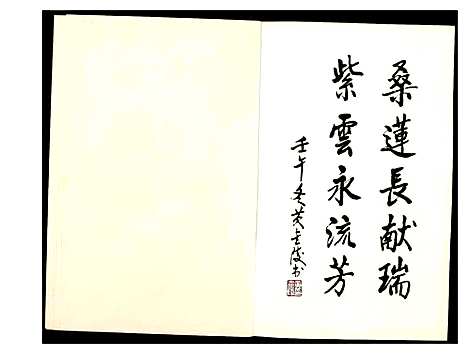 桑蓮長献瑞
紫雲永流芳
壬午冬黄书